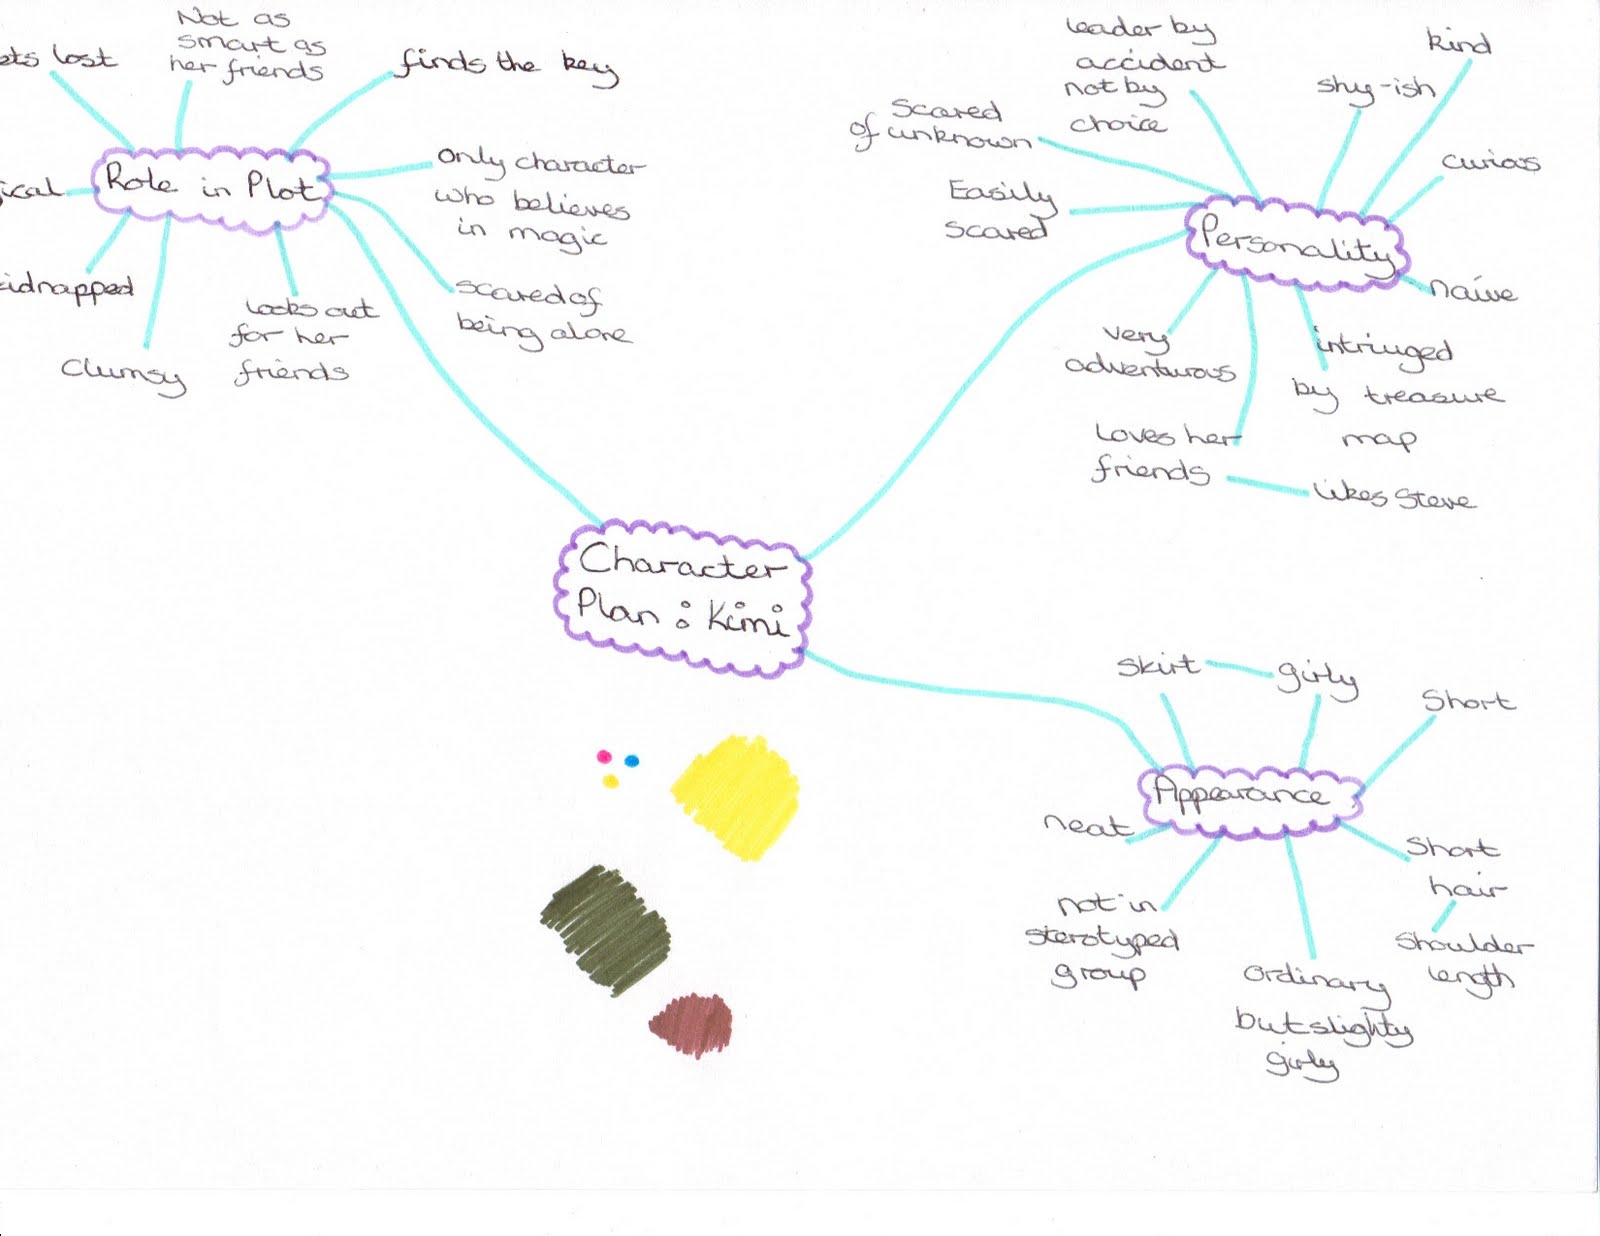 Not as
smart as
her friends
lost
finds the key
Role in Plot
only character
who believes
in magic
scared of
being alone
looks out
for her
friends
clumsy
kidnapped
leader by
accident
not by
choice
kind
shy-ish
scared
of unknown
curious
Easily
scared
Personality
naive
very
adventurous
intriuged
by treasure
map
Loves her
friends
likes Steve
Character
Plan : Kimi
skirt
girly
Short
Appearance
neat
Short
hair
shoulder
length
not in
sterotyped
group
ordinary
but slighty
girly